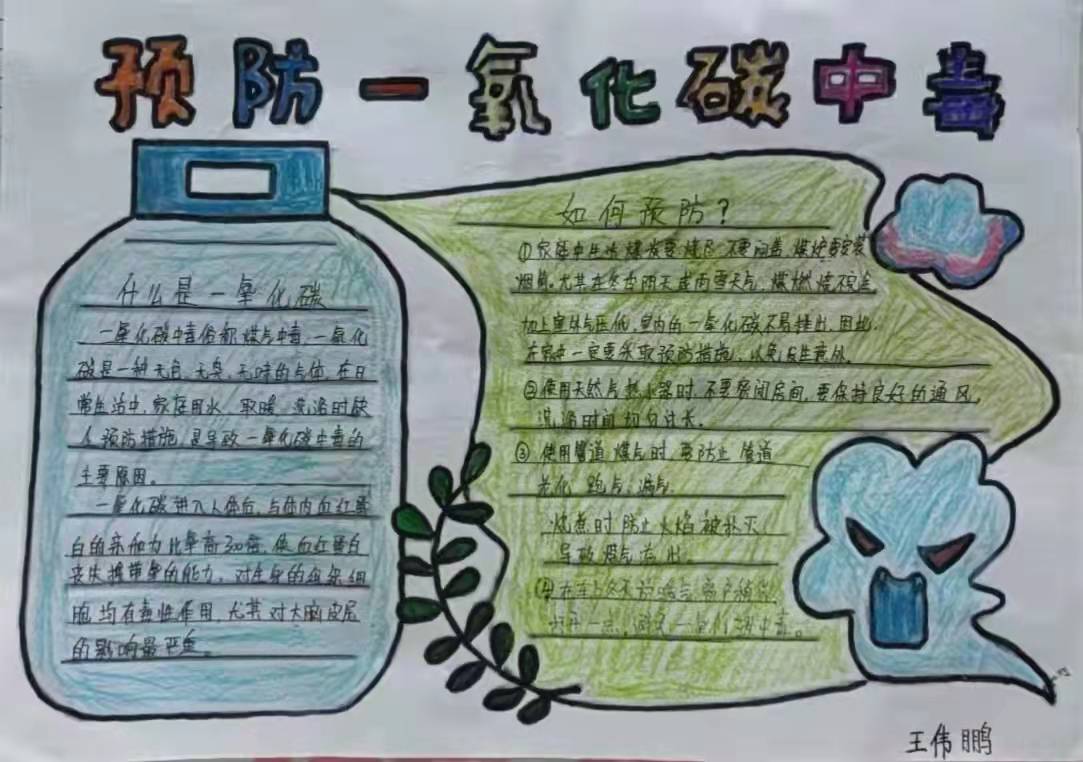 预防一氧化碳中毒
什么是一氧化碳
一氧化碳中毒俗称煤气中毒,一氧化
碳是一种无色、无臭、无味的气体,在日
常生活中,家庭用火、取暖、洗浴时缺
人预防措施,是导致一氧化碳中毒的
主要原因。
一氧化碳进入人体后,与体内血红蛋
白的亲和力比氧高300倍,使血红蛋白
丧失携带氧的能力,对全身的组织细
胞均有毒性作用,尤其对大脑皮层
的影响最严重。
如何预防?
①家庭中生活煤炭要烧尽 不要闷盖 煤炉要安装
烟筒。尤其在冬日阴天或雨雪天气,煤燃烧不完全
加上室外气压低,室内的一氧化碳不易排出,因此,
在家中一定要采取预防措施,以免发生意外。
②使用天然气热水器时,不要密闭房间,要保持良好的通风,
洗浴时间切勿过长。
③ 使用管道煤气时,要防止管道
老化 跑气、漏气,
烧煮时防止火焰被扑灭,
导致煤气溢出。
④在
一点,避免一氧化碳中毒。
王伟鹏